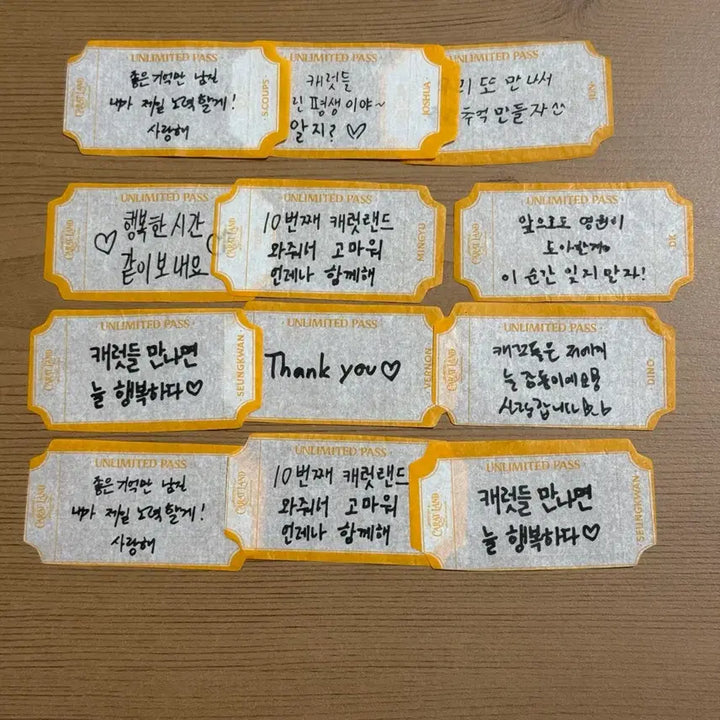 UNLIMITED PASS
CARAT LAND
좋은 기억만 남길
내가 제일 노력할게!
사랑해
S.COUPS
UNLIMITED PASS
캐럿들
린 평생이야~
알지? ♡
JOSHUA
UNLIMITED PASS
리 또 만나서
추억 만들자
JUN
UNLIMITED PASS
CARAT LAND
♡ 행복한 시간
같이 보내요
UNLIMITED PASS
CARAT LAND
10번째 캐럿랜드
와줘서 고마워
언제나 함께해
MINGYU
UNLIMITED PASS
CARAT LAND
앞으로도 영원히
이 순간 잊지 말자!
DK
UNLIMITED PASS
CARAT LAND
캐럿들 만나면
늘 행복하다♡
SEUNGKWAN
UNLIMITED PASS
Thank you♡
VERNON
UNLIMITED PASS
CARAT LAND
늘 감동이에요
사랑합니다
DINO
UNLIMITED PASS
CARAT LAND
좋은 기억만 남길
내가 제일 노력할게!
사랑해
UNLIMITED PASS
CARAT LAND
10번째 캐럿랜드
와줘서 고마워
언제나 함께해
UNLIMITED PASS
CARAT LAND
캐럿들 만나면
늘 행복하다♡
SEUNGKWAN